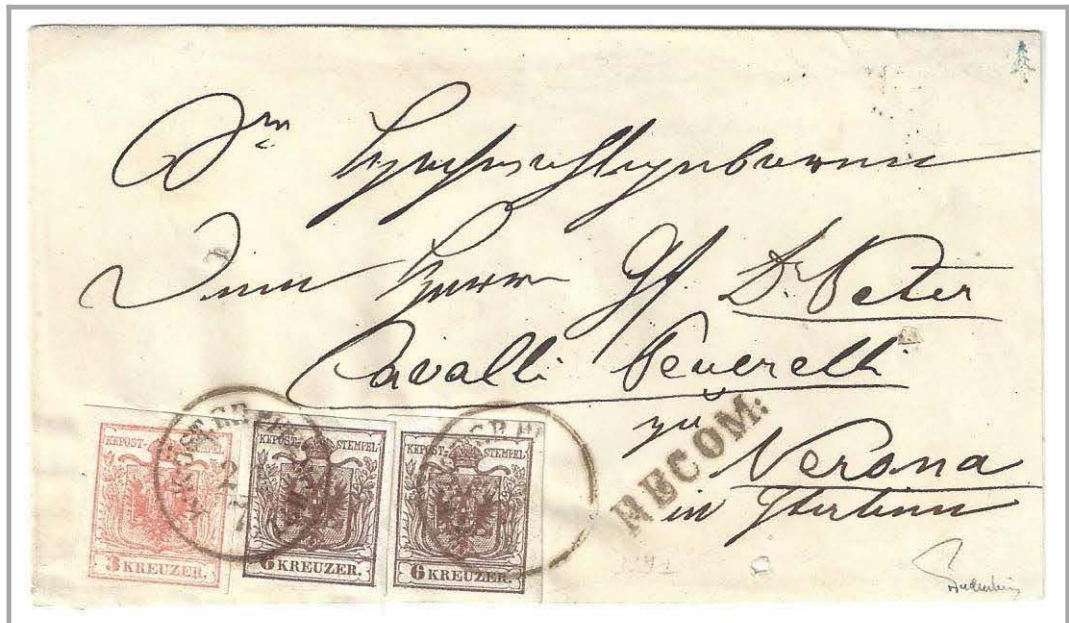 Sr Hochwohlgeboren
Dem Herrn Gf. Dr. Peter
Cavalli Peverelli
zu
Verona
in Italien
RECOM:
KKPOST-STEMPEL
3 KREUZER.
KKPOST-STEMPEL
6 KREUZER.
KKPOST-STEMPEL
6 KREUZER.